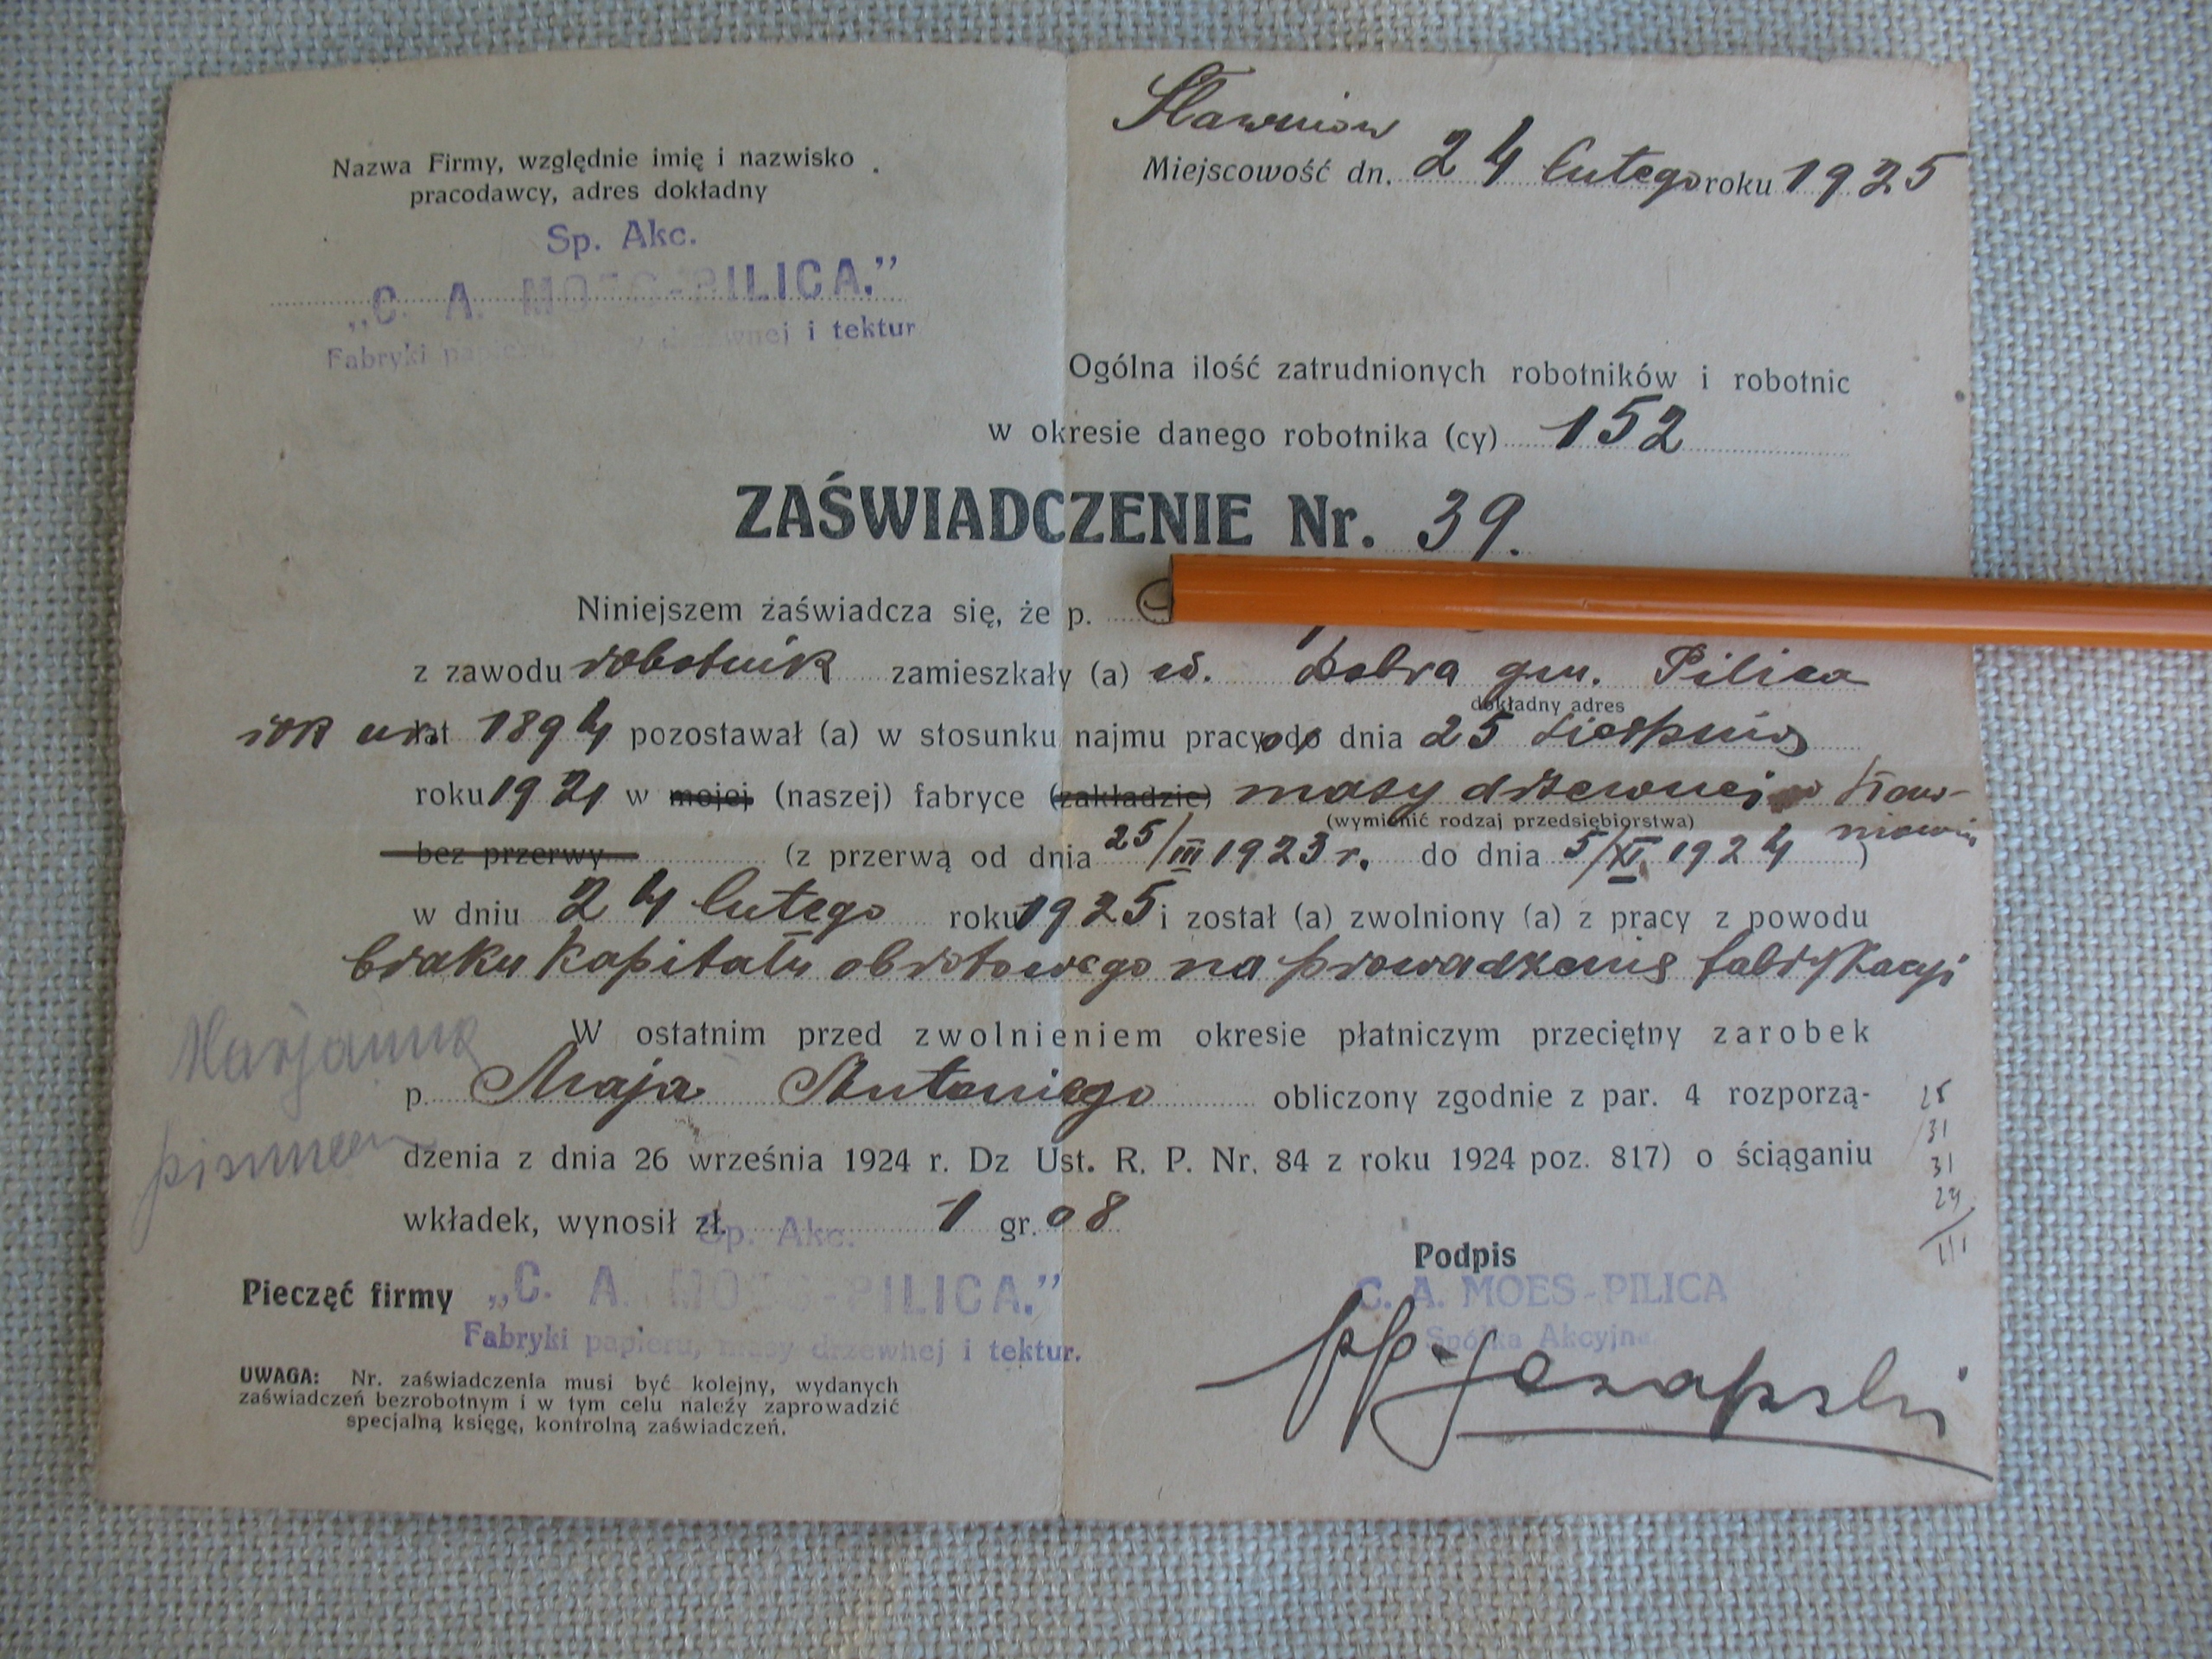 Sławniów
Nazwa Firmy, względnie imię i nazwisko
pracodawcy, adres dokładny
Miejscowość dn. 24 lutego roku 1925
Sp. Akc.
„C. A. MOES-PILICA.”
Fabryki papieru, masy drzewnej i tektur
Ogólna ilość zatrudnionych robotników i robotnic
w okresie danego robotnika (cy) 152
ZAŚWIADCZENIE Nr. 39.
Niniejszem zaświadcza się, że p.
z zawodu robotnik zamieszkały (a) w. Dobra gm. Pilica
dokładny adres
rok ur. 1894 pozostawał (a) w stosunku najmu pracy od dnia 25 sierpnia
roku 1921 w mojej (naszej) fabryce (zakładzie) masy drzewnej w Sław-
niowie
(wymienić rodzaj przedsiębiorstwa)
bez przerwy (z przerwą od dnia 25/III 1923 r. do dnia 5/XI 1924)
w dniu 24 lutego roku 1925 i został (a) zwolniony (a) z pracy z powodu
braku kapitału obrotowego na prowadzenie fabrykacji
W ostatnim przed zwolnieniem okresie płatniczym przeciętny zarobek
Marjanna
p. Maja Antoniego obliczony zgodnie z par. 4 rozporzą-
dzenia z dnia 26 września 1924 r. Dz Ust. R. P. Nr. 84 z roku 1924 poz. 817) o ściąganiu
wkładek, wynosił zł. 1 gr. 08
25
31
31
24
111
Sp. Akc.
Pieczęć firmy „C. A. MOES-PILICA.”
Fabryki papieru, masy drzewnej i tektur.
Podpis
C. A. MOES-PILICA
Spółka Akcyjna
UWAGA: Nr. zaświadczenia musi być kolejny, wydanych
zaświadczeń bezrobotnym i w tym celu należy zaprowadzić
specjalną księgę, kontrolną zaświadczeń.